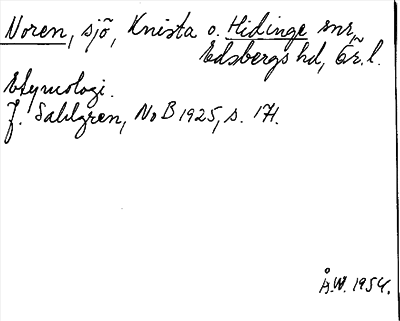 Noren, sjö, Knista o. Hidinge snr,
Edsbergs hd, Ör. l.
Etymologi.
J. Sahlgren, NoB 1925, s. 171.
Å.W. 1954.